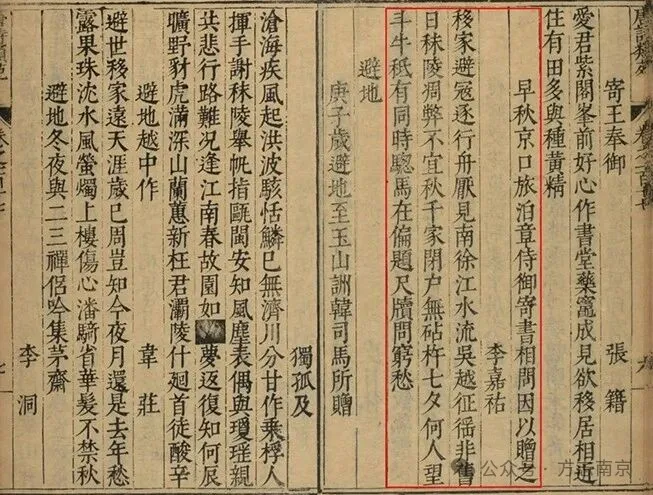 寄王奉御
張籍
愛君紫閣峯前好心作書堂藥竈成見欲移居相近
住有田多與種黃精
早秋京口旅泊章侍御寄書相問因以贈之
李嘉祐
移家避寇逐行舟厭見南徐江水流吳越征徭非舊
日秣陵凋弊不宜秋千家閉戶無砧杵七夕何人望
斗牛秪有同時驄馬在偏題尺牘問窮愁
避地
庚子歲避地至玉山詶韓司馬所贈
獨孤及
滄海疾風起洪波駭恬鱗已無濟川分甘作乘桴人
揮手謝秣陵舉帆指甌閩安知風塵表偶與瓊瑤親
共悲行路難况逢江南春故園如夢返復知何辰
曠野豺虎滿深山蘭蕙新枉君灞陵什廻首徒酸辛
避地越中作
韋莊
避世移家遠天涯歲已周豈知今夜月還是去年愁
露果珠沈水風螢燭上樓傷心潘騎省華髮不禁秋
避地冬夜與二三禪侶吟集茅齋
李洞
公众号 · 方志南京